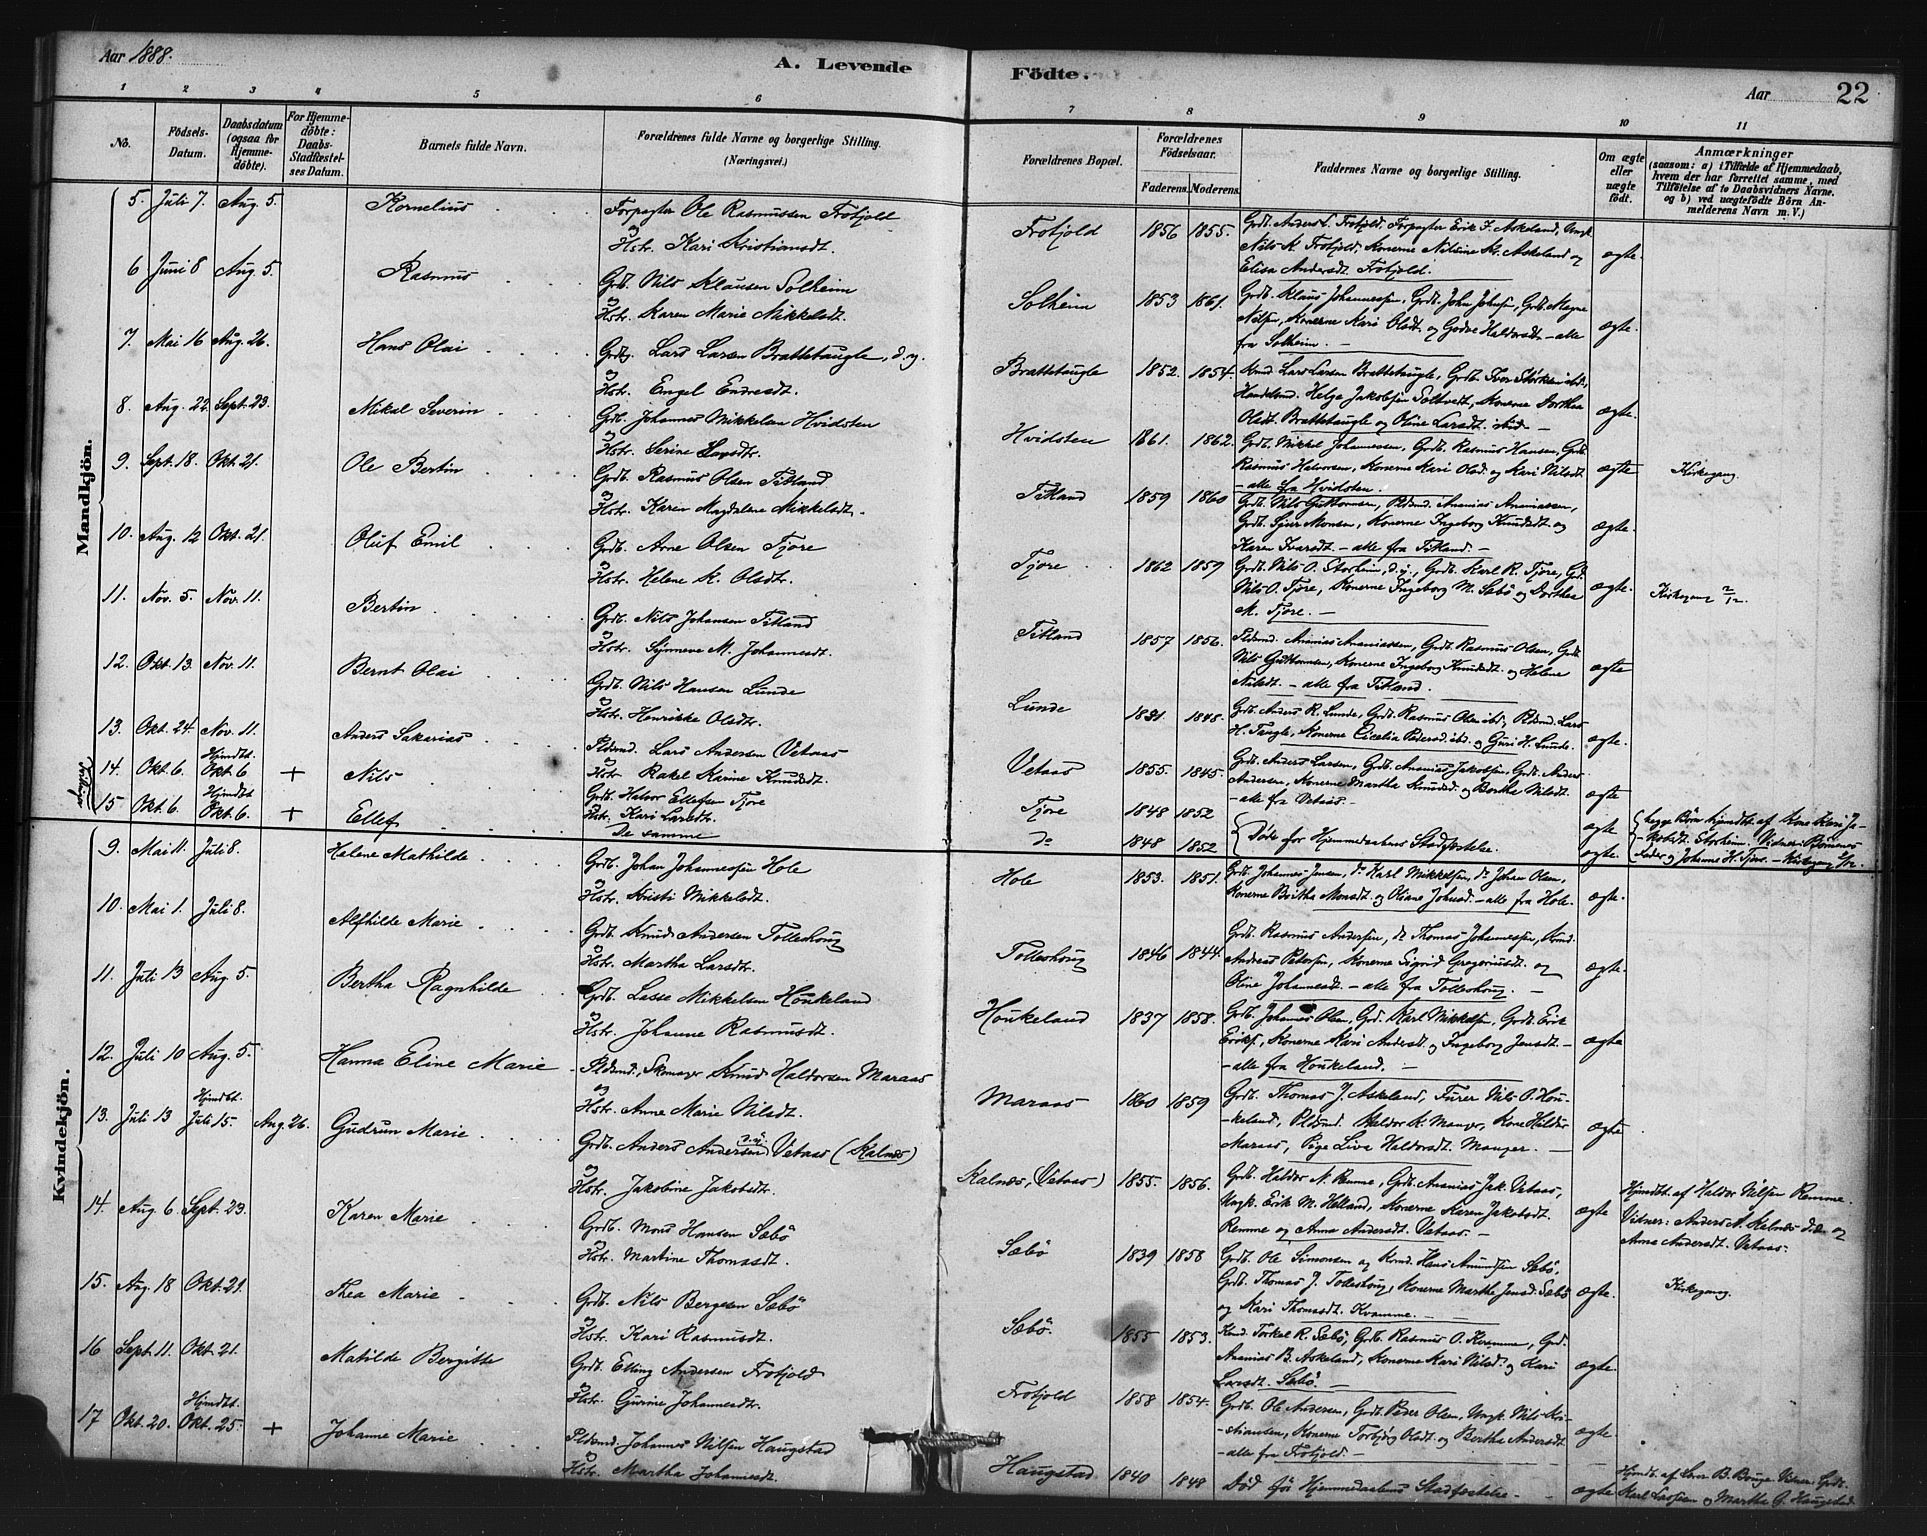 Aar 1888.
A. Levende Födte.
Aar
22
1 2 3 4 5 6 7 8 9 10 11
No.
Födsels-Datum.
Daabsdatum (ogsaa for Hjemme-döbte).
For Hjemme-döbte: Daabs-Stadfæstel-ses Datum.
Barnets fulde Navn.
Forældrenes fulde Navne og borgerlige Stilling. (Næringsvei.)
Forældrenes Bopæl.
Forældrenes Födselsaar.
Faderens. Moderens.
Faddernes Navne og borgerlige Stilling.
Om ægte eller uægte födt.
Anmærkninger
(saasom: a) i Tilfælde af Hjemmedaab, hvem der har forrettet samme, med Tilföielse af to Daabsvidners Navne. og b) ved uægtefödte Börn Anmelderens Navn m. V.)
Mandkjön.
5. Juli 7 Aug. 5. Kornelius Forpagter Ole Rasmussen Frotjold
og Hstr. Kari Kristiansdt.
Frotjold 1856 1855. Grdb. Anders L. Frotjold, Forpagter Erik J. Askeland, Ungk.
Nils K. Frotjold, Konerne Nilsine Kr. Askeland og
Elisa Andersdt. Frotjold. ægte.
6 Juni 8 Aug. 5. Rasmus Grdb. Nils Klausen Solheim
og Hstr. Karen Marie Mikkelsdt.
Solheim 1853 1861. Grdb. Klaus Johannessen, Grdb. John Johnsen, Grdb. Magne
Nilsen, Konerne Kari Olsdt. og Godve Haldorsdt. - alle
fra Solheim. - ægte.
7. Mai 16 Aug. 26. Hans Olai Grdbg. Lars Larsen Brattetaugle, d.y.
og Hstr. Engel Endresdt.
Brattetaugle 1852. 1854. Kmd. Lars Larsen Brattetaugle, Grdb. Ivar Störksen ibd.,
Handelsmd. Helge Jakobsen Soltvedt, Konerne Dorthea
Olsdt. Brattetaugle og Oline Larsdt. ibid. - ægte.
8. Aug. 22. Sept. 23. Mikal Severin Grdb. Johannes Mikkelsen Hvidsten
og Hstr. Serine Larsdtr.
Hvidsten 1861. 1862. Grdb. Mikkel Johannessen, Grdb. Rasmus Hansen, Grdb.
Rasmus Halvorsen, Konerne Kari Olsd. og Kari Nilsdt.
- alle fra Hvidsten. ægte Kirkegang.
9. Sept. 18. Okt. 21. Ole Bertin Grdb. Rasmus Olsen Titland
og Hstr. Karen Magdalene Mikkelsdt.
Titland 1859 1860 Grdb. Nils Guttormsen, Pldsmd. Ananias Ananiassen,
Grdb. Sjur Monsen, Konerne Ingeborg Knudsdt. og
Karen Ivarsdt. - alle fra Titland. - ægte.
10. Aug. 12 Okt. 21. Oluf Emil Grdb. Arne Olsen Tjore
og Hstr. Helene K. Olsdtr.
Tjore 1862 1859 Grdb. Nils O. Storheim, d.y., Grdb. Karl R. Tjore, Grd.
Nils O. Tjore, Konerne Ingeborg M. Sæbö og Dorthea
M. Tjore. - ægte. Kirkegang 2/12.
11. Nov. 5. Nov. 11. Bertin Grdb. Nils Johansen Titland
og Hstr. Synneve M. Johannesdt.
Titland 1857 1856. Pldsmd. Ananias Ananiassen, Grdb. Rasmus Olsen, Grdb.
Nils Guttormsen, Konerne Ingeborg Knudsdt. og Helene
Nilsdt. - alle fra Titland. ægte
12. Okt. 13. Nov. 11. Bernt Olai Grdb. Nils Hansen Lunde
og Hstr. Henrikke Olsdtr.
Lunde 1831. 1845. Grdb. Anders R. Lunde, Grdb. Rasmus Olsen ibd., Pldsmd. Lars
H. Taugle, Konerne Cicelia Pedersd. ibd. og Guri H. Lunde. ægte.
13. Okt. 24 Nov. 11. Anders Sakarias Pldsmd. Lars Andersen Vetaas
og Hstr. Rakel Karine Knudsdt.
Vetaas 1855. 1845. Grdb. Anders Larsen, Grdb. Ananias Jakobsen, Grdb. Anders
Andersen, Konerne Martha Knudsd. og Bertha Nilsdt.
- alle fra Vetaas. - ægte
Tvillinger
14. Okt. 6. Hjmdbt. Okt. 6 + Nils Grdb. Halvor Ellefsen Tjore
Hstr. Kari Larsdtr.
Tjore 1848 1852 ægte
15 Okt. 6. Hjmdbt. Okt. 6. + Ellef De samme
Do 1848 1852 Döde för Hjemmedaabens Stadfæstelse. ægte.
begge Börn hjmdbt. af Kone Kari Ja-
-kobsdt. Storheim. Vidner: Börnenes
Fader og Johannes H. Tjore. - Kirkegang
Kvindekjön.
9. Mai 11. Juli 8. Helene Mathilde Grdb. Johan Johannessen Hole
og Hstr. Kristi Mikkelsdt.
Hole 1853. 1851. Grdb. Johannes Jensen, do Karl Mikkelsen, do Johan Olsen,
Konerne Britha Monsdt. og Oliane Johnsd. - alle fra Hole. ægte.
10. Mai 1. Juli 8. Alfhilde Marie Grdb. Knud Andersen Tolleshoug
og Hstr. Martha Larsdtr.
Tolleshoug 1846 1844. Grdb. Rasmus Andersen, do Thomas Johannessen, Kmd.
Andreas Petersen, Konerne Sigrid Gregoriusdt. og
Oline Johannesdt. - alle fra Tolleshoug. - ægte.
11. Juli 13 Aug. 5. Bertha Ragnhilde Grdb. Lasse Mikkelsen Houkeland
og Hstr. Johanne Rasmusdt.
Houkeland 1837 1858. Grdb. Johannes Olsen, Grd. Karl Mikkelsen, Grdb. Erik
Eriks., Konerne Kari Andersdt. og Ingeborg Jensdt. -
- alle fra Houkeland. - ægte
12. Juli 10 Aug. 5. Hanna Eline Marie Pldsmd., Skomager Knud Haldorsen Maraas
og Hstr. Anne Marie Nilsdt.
Maraas 1860 1859 Grdb. Thomas J. Askeland, Furer Nils O. Hou-
-keland, Pldsmd. Haldor K. Manger, Kone Hilda
Maraas, Pige Liva Haldorsdt. Manger. - ægte
13. Juli 13 Hjmdbt. Juli 15. Aug. 26. Gudrun Marie Grdb. Anders Andersen d.y. Vetaas (Kalnæs)
og Hstr. Jakobine Jakobsdtr.
Kalnæs, (Vetaas) 1855. 1856. Grdb. Haldor N. Remme, Grdb. Ananias Jak. Vetaas,
Ungk. Erik M. Helland, Konerne Karen Jakobsdt.
Remme og Anna Andersdt. Vetaas. - ægte
Hjmdbt. af Haldor Nilsen Remme.
Vidner: Anders A. Kalnæs d.æ. og
Anna Andersdt. Vetaas.
14. Aug. 6. Sept. 23. Karen Marie Grdb. Mons Hansen Sæbö
og Hstr. Martine Thomasdt.
Sæbö 1839 1858 Grdb. Ole Simonsen og Kmd. Hans Amundsen Sæbö,
Grdb. Thomas J. Tolleshoug, Konerne Marthe Jensd. Sæbö
og Kari Thomasdt. Kvamme. - ægte. Kirkegang.
15. Aug. 18 Okt. 21. Thea Marie Grdb. Nils Bergesen Sæbö
og Hstr. Kari Rasmusdt.
Sæbö. 1855 1853. Kmd. Torkel R. Sæbö, Grdb. Rasmus O. Kvamme, Grd.
Ananias B. Askeland, Konerne Kari Nilsd. og Kari
Larsdt. Sæbö. - ægte.
16 Sept. 11. Okt. 21. Matilde Bergitte Grdb. Elling Andersen Frotjold
og Hstr. Gurine Johannesdt.
Frotjold 1858 1854. Grdb. Ole Andersen, Grdb. Peder Olsen, Ungk. Nils Kri-
-stiansen, Konerne Torbjög Olsdt. og Bertha Andersdt.
- alle fra Frotjold. - ægte.
17 Okt. 20. Hjmdbt. Okt. 25. + Johanne Marie Pldsmd. Johannes Nilsen Haugstad
og Hstr. Martha Johannesdt.
Haugstad 1840 1848 Död för Hjemmedaabens Stadfæstelse. - ægte
Hjmdbt. af Lærer B. Bouge. Vidner: Grdb.
Karl Lassen og Martha G. Haugstad.